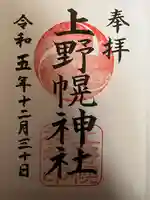 奉拝
上野幌神社
令和五年十二月三十日